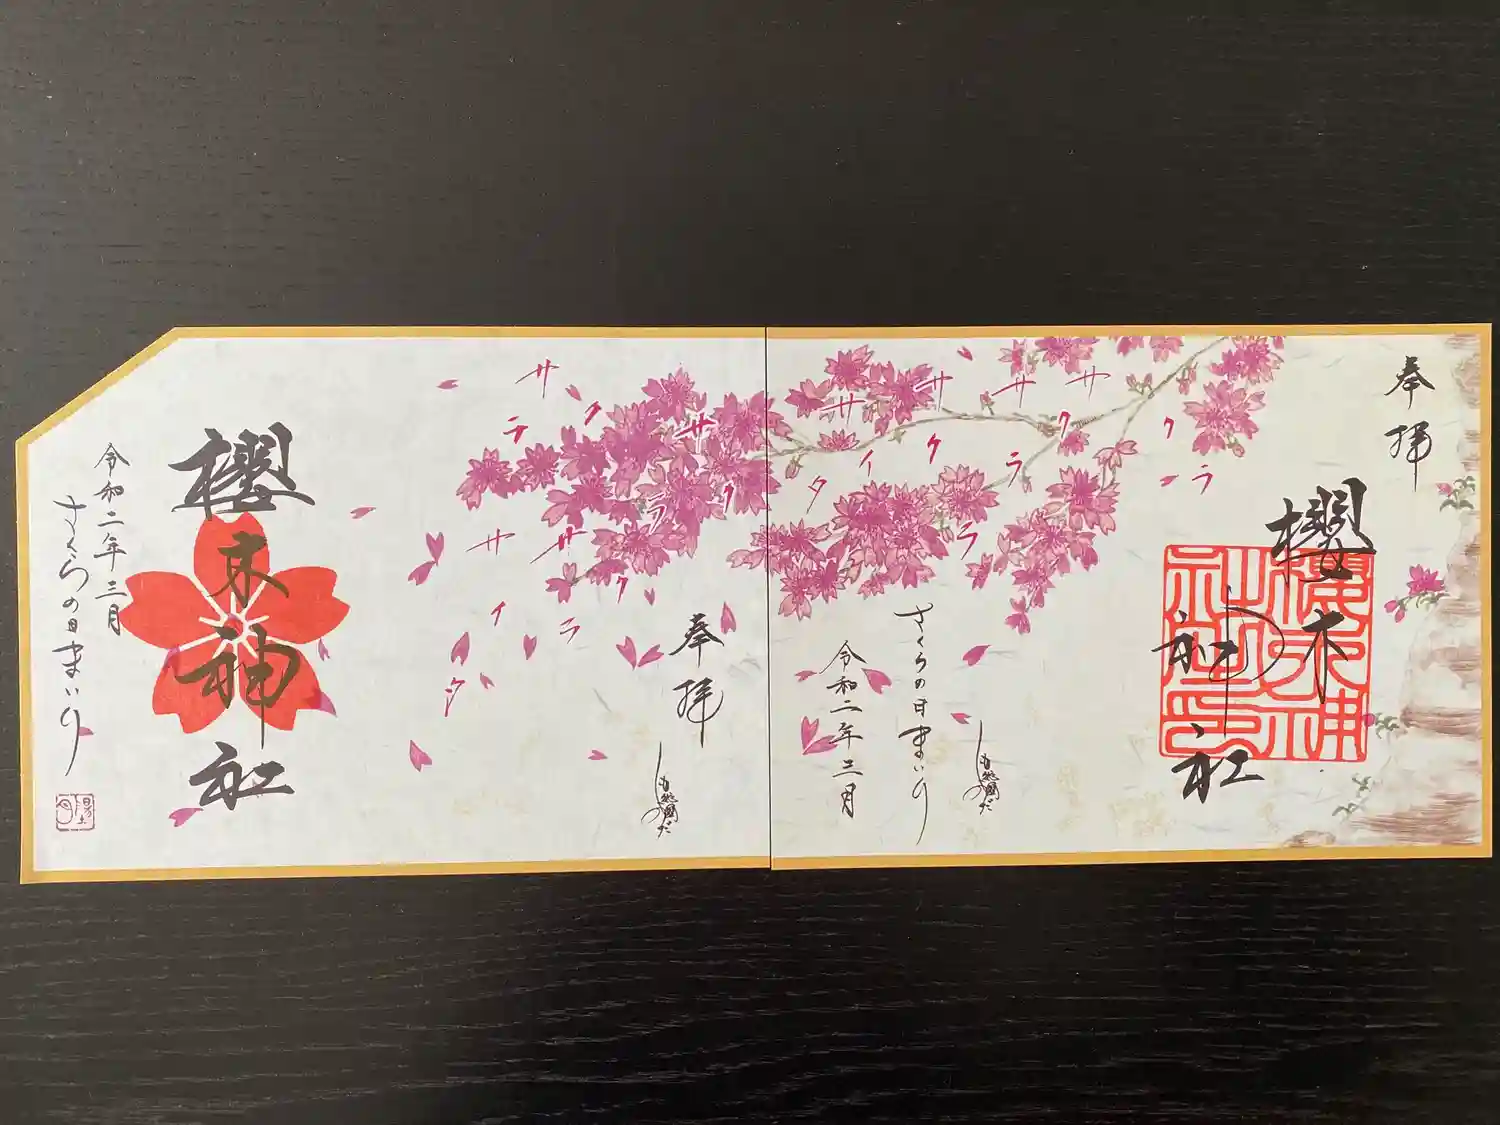 奉拝
櫻木神社
櫻木神社之印
サクラ
サクラ
サクラ
サイタ
さくらの日まいり
令和二年三月
奉拝
サクラ
サクラ
サクラ
サイタ
櫻木神社
令和二年三月
さくらの日まいり